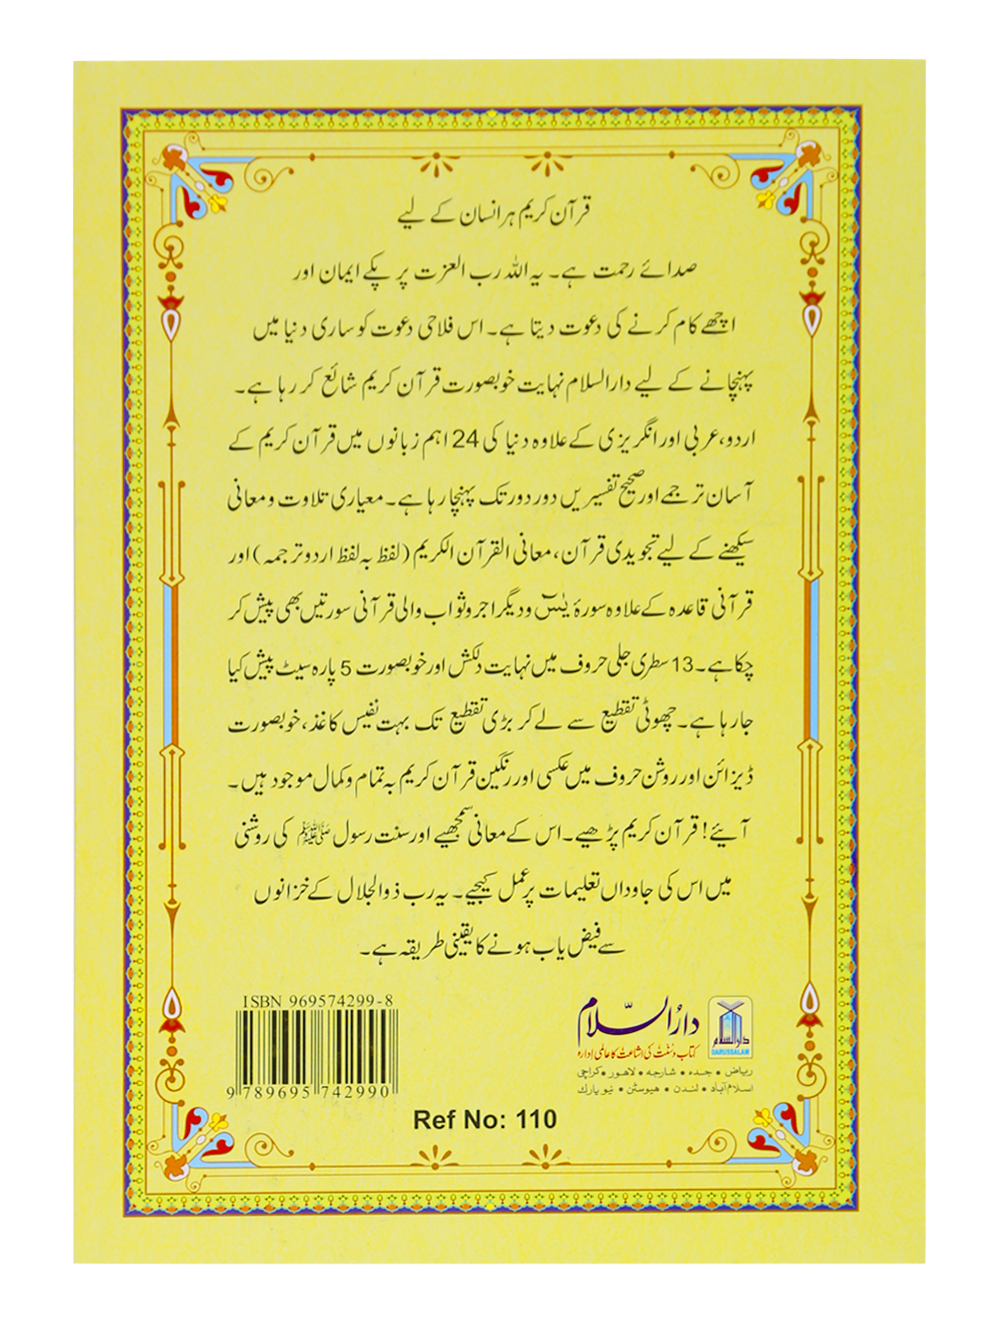 قرآن کریم ہر انسان کے لیے
صدائے رحمت ہے۔ یہ اللہ رب العزت پر پکے ایمان اور
اچھے کام کرنے کی دعوت دیتا ہے۔ اس فلاحی دعوت کو ساری دنیا میں
پہنچانے کے لیے دارالسلام نہایت خوبصورت قرآن کریم شائع کر رہا ہے۔
اردو، عربی اور انگریزی کے علاوہ دنیا کی 24 اہم زبانوں میں قرآن کریم کے
آسان ترجمے اور صحیح تفسیریں دور دور تک پہنچا رہا ہے۔ معیاری تلاوت و معانی
سیکھنے کے لیے تجویدی قرآن، معانی القرآن الکریم (لفظ بہ لفظ اردو ترجمہ) اور
قرآنی قاعدہ کے علاوہ سورۂ یٰسٓ و دیگر اجر و ثواب والی قرآنی سورتیں بھی پیش کر
چکا ہے۔ 13 سطری جلی حروف میں نہایت دلکش اور خوبصورت 5 پارہ سیٹ پیش کیا
جا رہا ہے۔ چھوٹی تقطیع سے لے کر بڑی تقطیع تک بہت نفیس کاغذ، خوبصورت
ڈیزائن اور روشن حروف میں عکسی اور رنگین قرآن کریم بہ تمام و کمال موجود ہیں۔
آیئے! قرآن کریم پڑھیے۔ اس کے معانی سمجھیے اور سنت رسول ﷺ کی روشنی
میں اس کی جاوداں تعلیمات پر عمل کیجیے۔ یہ رب ذوالجلال کے خزانوں
سے فیض یاب ہونے کا یقینی طریقہ ہے۔
ISBN 969574299-8
9 789695 742990
دارالسلام
کتاب و سنت کی اشاعت کا عالمی ادارہ
ریاض • جدہ • شارجہ • لاہور • کراچی
اسلام آباد • لندن • ہیوسٹن • نیو یارک
دارالسلام
DARUSSALAM
Ref No: 110